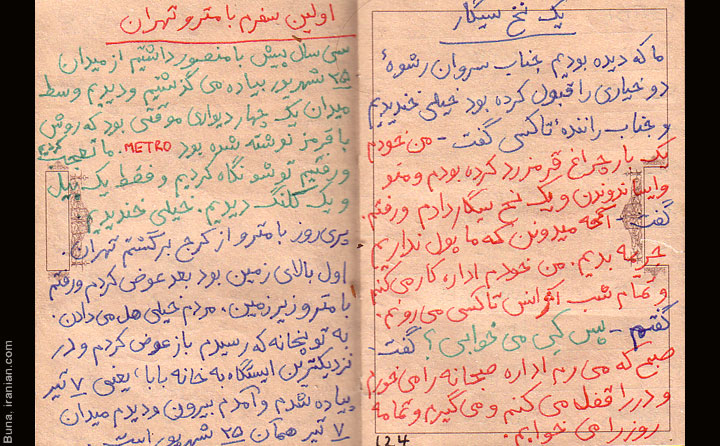 یک نخ سیگار
ما که دیده بودیم جناب سروان رشوهٔ
دو خیاری را قبول کرده بود خیلی خندیدیم
و جناب رانندهٔ تاکسی گفت - من خودم
یک بار چراغ قرمز رد کرده بودم و منو
وایسوندن و یک نخ سیگار دادم و رفتم.
گفت - آخه میدونن که ما پول نداریم
جریمه بدیم. من خودم اداره کار می کنم
و تمام شب آژانس تاکسی می رونم.
گفتم - پس کی می خوابی؟ گفت -
صبح که می رم اداره صبحانه را می خورم
و در را قفل می کنم و می گیرم و تمامه
روز را می خوابم.
124
اولین سفرم با مترو تهران
سی سال پیش با منصور داشتیم از میدان
۲۵ شهریور پیاده می گذشتیم و دیدیم وسط
میدان یک چهار دیواری موقتی بود که روش
با قرمز نوشته شده بود METRO. ما تعجب کردیم
و رفتیم توشو نگاه کردیم و فقط یک بیل
و یک کلنگ دیدیم. خیلی خندیدیم.
پری روز با مترو از کرج برگشتم تهران.
اول بالای زمین بود بعد عوض کردم و رفتم
با مترو زیر زمین. مردم خیلی هل می دادن.
به توپخانه که رسیدم باز عوض کردم و در
نزدیکترین ایستگاه به خانه بابا، یعنی ۷ تیر
پیاده شدم و آمدم بیرون و دیدم میدان
۷ تیر همان ۲۵ شهریور است.
Buna, iranian.com